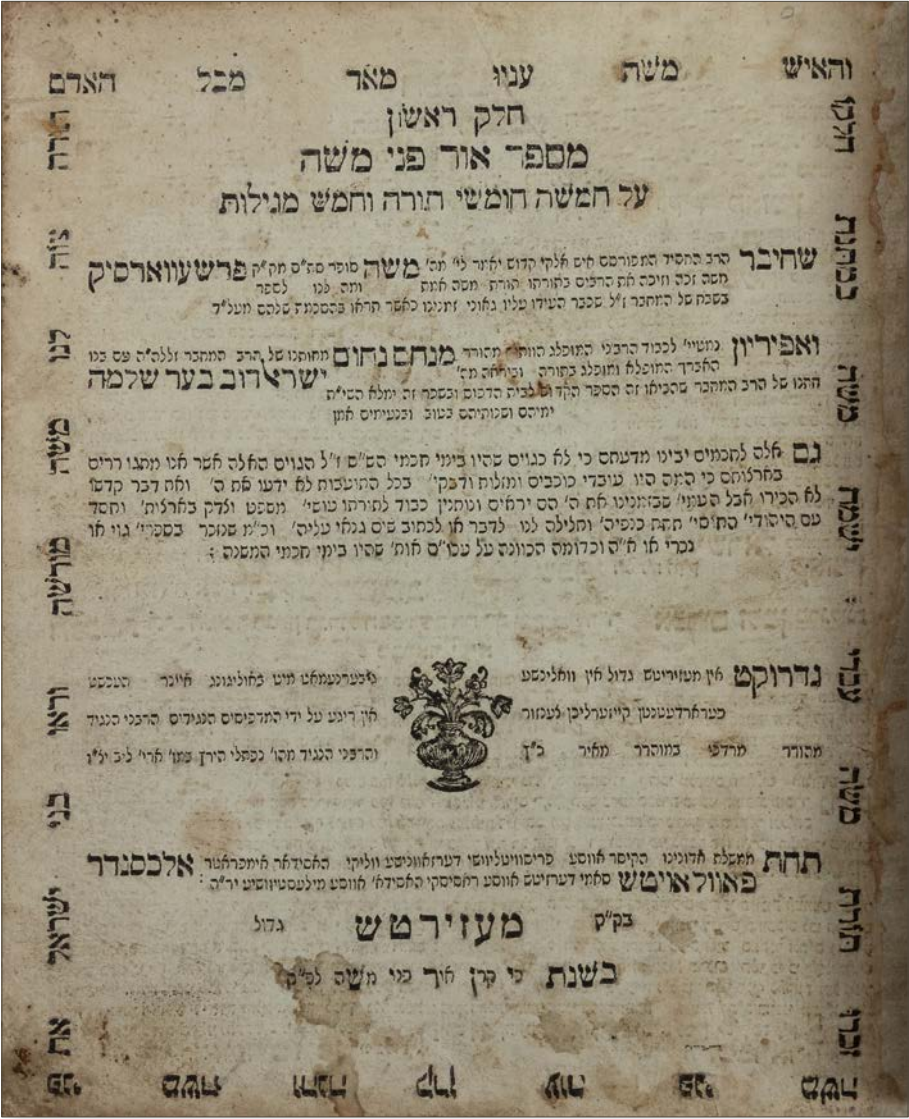 והאיש משה עניו מאד מכל האדם
חלק ראשון
מספר אור פני משה
על חמשה חומשי תורה וחמש מגילות
שחיבר הרב החסיד המפורסם איש אלקי קדוש יאמר לו מה' משה סופר סת"ם מק"ק פרשעווארסיק
משה זכה וזיכה את הרבים בתורתו תורת משה אמת ומה לנו לספר
בשבח של המחבר ז"ל שכבר העידו עליו גאוני זמנינו כאשר תראו בהסכמה שלהם מעל"ד
ואפיריון נמטיי' לכבוד הרבני המופלג הוותיק מהורר מנחם נחום מחותנו של הרב המחבר זללה"ה עם בנו
האברך המופלא ומופלג בתורה וביראה מה' ישראל דוב בער שלמה
חתנו של הרב המחבר שהביאו זה הספר הקדוש לבית הדפוס ובשכר זה ימלא השי"ת
ימיהם ושנותיהם בטוב ובנעימים אמן
גם אלה לחכמים יבינו מדעתם כי לא כגוים שהיו בימי חכמי הש"ס ז"ל הגוים האלה אשר אנו מתגוררים
בארצותם כי המה היו עובדי כוכבים ומזלות ודבקי' בכל התועבות לא ידעו את ה' ואת דבר קדשו
לא הכירו אבל העמי' שבזמנינו את ה' הם יראים ונותנין כבוד לתורתו עושי' משפט וצדק בארצות' וחסד
עם היהודי' החוסי' תחת כנפיה' וחלילה לנו לדבר או לכתוב שום גנאי עליה' וכ"מ שנזכר בספרי' גוי או
נכרי או א"ה וכדומה הכוונה על עכו"ם אות' שהיו בימי חכמי המשנה :
גדרוקט אין מעזיריטש גדול אין וואלינשע גיבערנעמאט מיט באוליגונג איינר העכשט
פעראדרעטנטן קייזערליכן לענזור אין ריגע על ידי המדפיסים הנגידים הרבני הנגיד
מהורר מרדכי במוהרר מאיר כ"ץ והרבני הנגיד מהו' נפתלי הירץ במו' ארי' ליב יצ"ו
תחת ממשלת אדונינו הקיסר אווסע פריסוויטליווישי דערזאוונישע וועליקי האסידאר אימפראטר אלכסנדר
פאוולאוויטש סאמי דערזיטש אווסע ראסיסקי האסידא' אווסע מילעסטיוושיע יר"ה :
בק"ק מעזירטש גדול
בשנת כי קרן אור פני משה לפ"ק
חלקו במתנת משה ישמח : עבדי משה תורת זכרו
תורה צוה לנו משה מורשה וראו בני ישראל את
פני משה והנה קרן עור פני משה